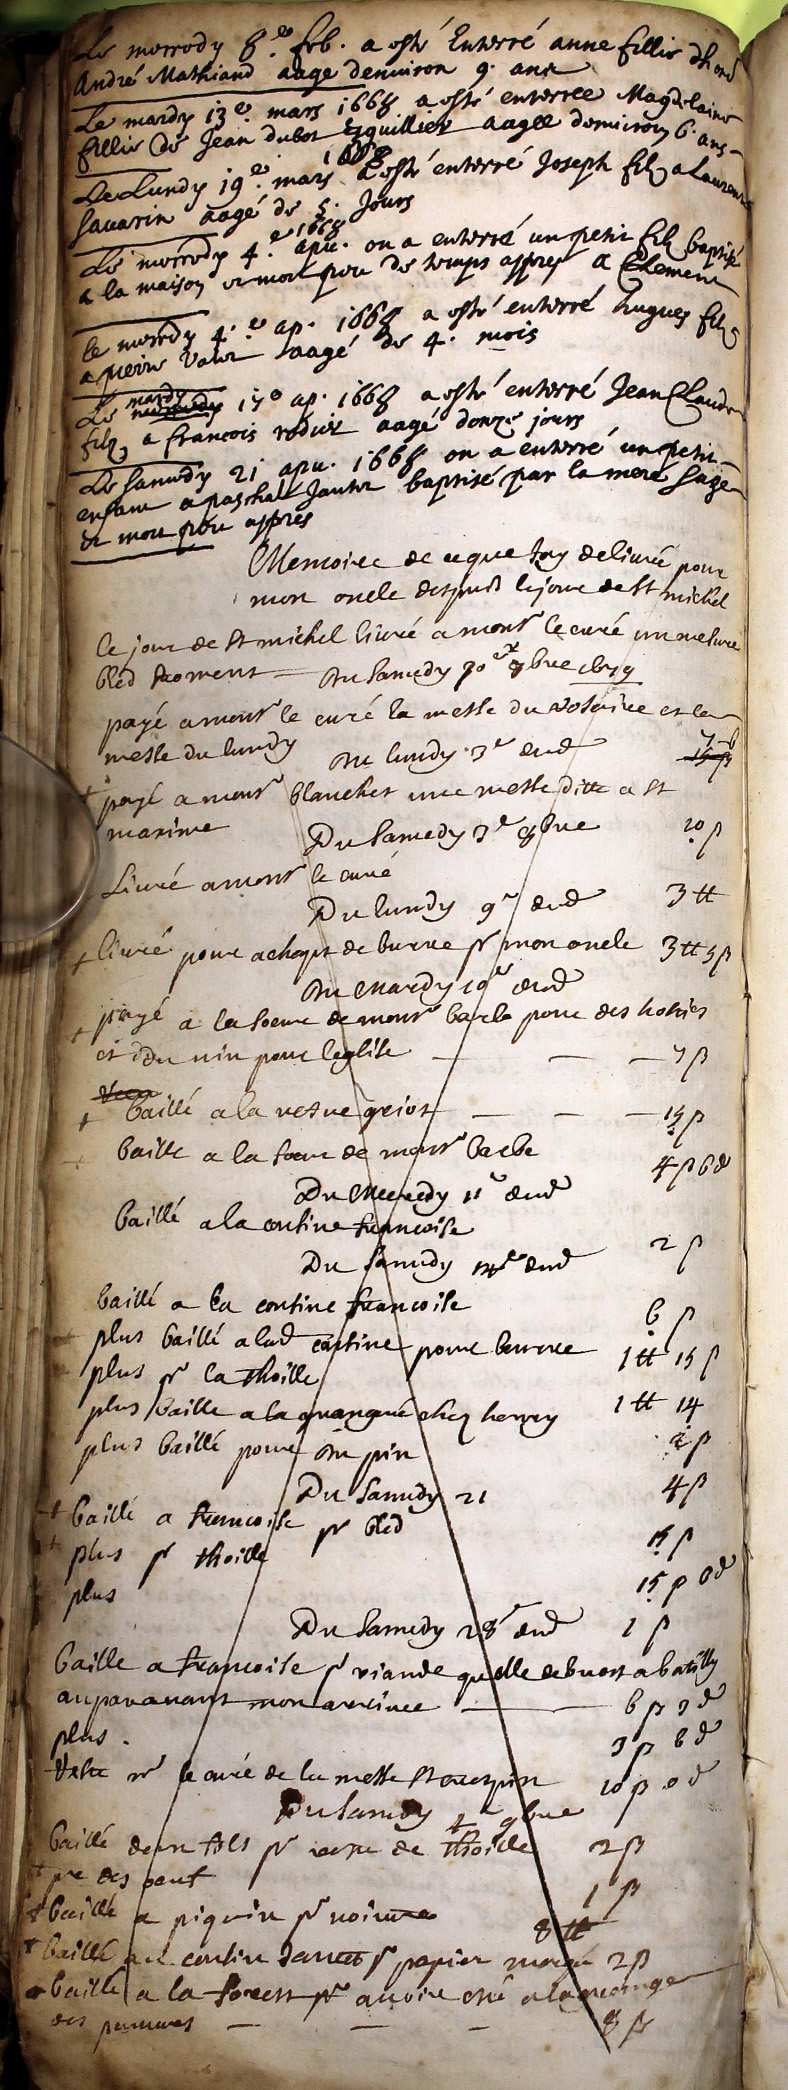 Le mecredy 8.e feb. a esté Enterré anne fillie dhono
André Mathiand aage denuiron 9. ans
Le mardy 13e. mars 1668 a esté enterree Magdelaine
fillie de Jean dubot Esguillier aagee denuiron 6. ans
1668
Le Lundy 19.e mars a esté enterré Joseph filz a Laurens
Sauarin aagé de 5. Jours
1668
Le mecredy 4.e apu. on a enterré un petit filz baptisé
a la maison et mort peu de temps appres a Clement
le mecredy 4.e ap. 1668 a esté enterré hugues filz
a pierre aagé de 4. mois
mardy
Le 17e ap. 1668 a esté enterré Jean Claude
filz a francois rodier aagé donze jours
Le Samedy 21 apu. 1668 on a enterré un petit
enfant a paschal Jantet baptisé par la mere Sage
et mort peu appres
Memoire de ce que Jay deliuré pour
mon oncle despuis le jour de St michel
le jour de St michel liuré a monsr le curé un mesure
bled froment Du Samedy
payé a monsr le curé la messe du rosaire et la
messe du lundy Du lundy
payé a monsr blanchet une messe ditte a St
maxime 10 ß
Du Samedy 3e 8bre
Liuré a monsr le curé 3 tt
Du lundy 9e dud
+ liuré pour achept de burre pr mon oncle 3 tt 5 ß
Du Mardy 10e dud
+ payé a la soeur de monsr barbe pour des hosties
et du uin pour leglise 7 ß
+ baillé a la vesue griot 15 ß
baillé a la soeur de monsr barbe 4 ß 6 d
Du Mecredy 11e dud
baillé a la cousine francoise 2 ß
Du Samedy 14e dud
baillé a la cousine francoise 6 ß
plus baillé a lad cousine pour beurre 1 tt 15 ß
plus pr la thoille 1 tt 14
plus baillé a la chez henry 2 ß
plus baillé pour du pin 4 ß
Du Samedy 21
+ baillé a francoise pr bled 15 ß
+ plus pr thoille 15 ß 0 d
plus 1 ß
Du Samedy 28e dud
baille a francoise pr viande quelle debuoit a batilly
auparauant mon arriuee 6 ß 3 d
plus 3 ß 6 d
pr le curé de la messe St crespin 10 ß 0 d
Du Samedy 4e 9bre
baillé deux sols pr reste de thoille 2 ß
+ pr des oeuf 1 ß
+ baillé a piquin pr 8 tt
+ baillé au cousin pr papier 2 ß
baillé a la forest pr auoir esté a la grange
des pommes 8 ß